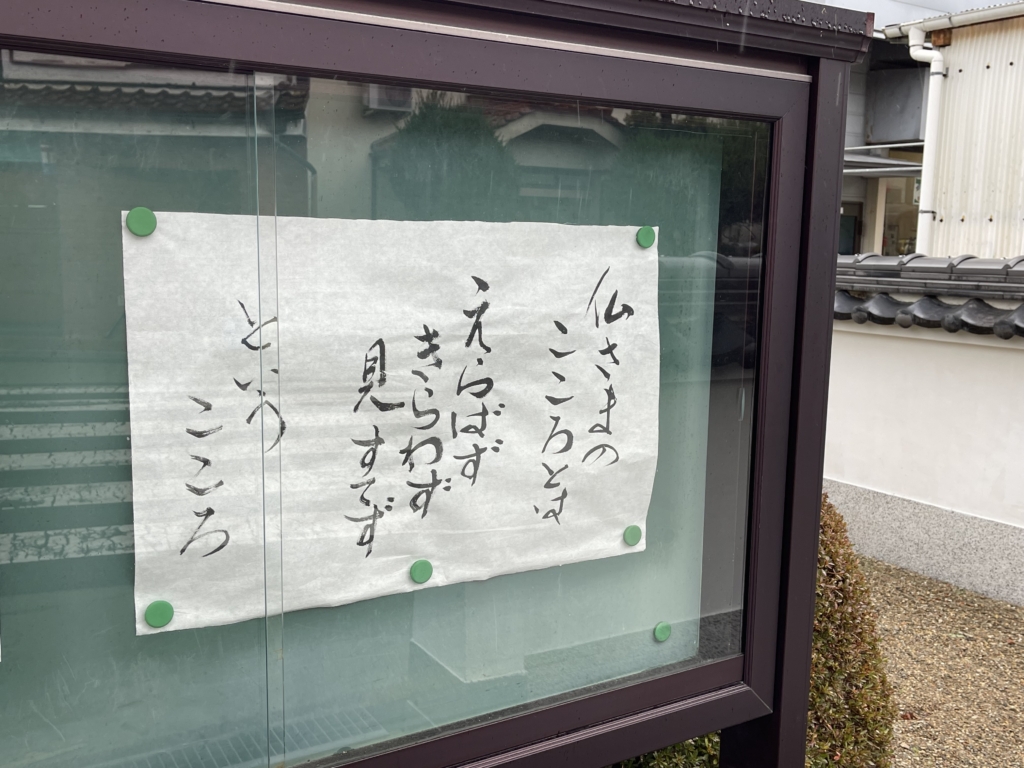 仏さまの
こころとは
えらばず
きらわず
見すてず
という
こころ